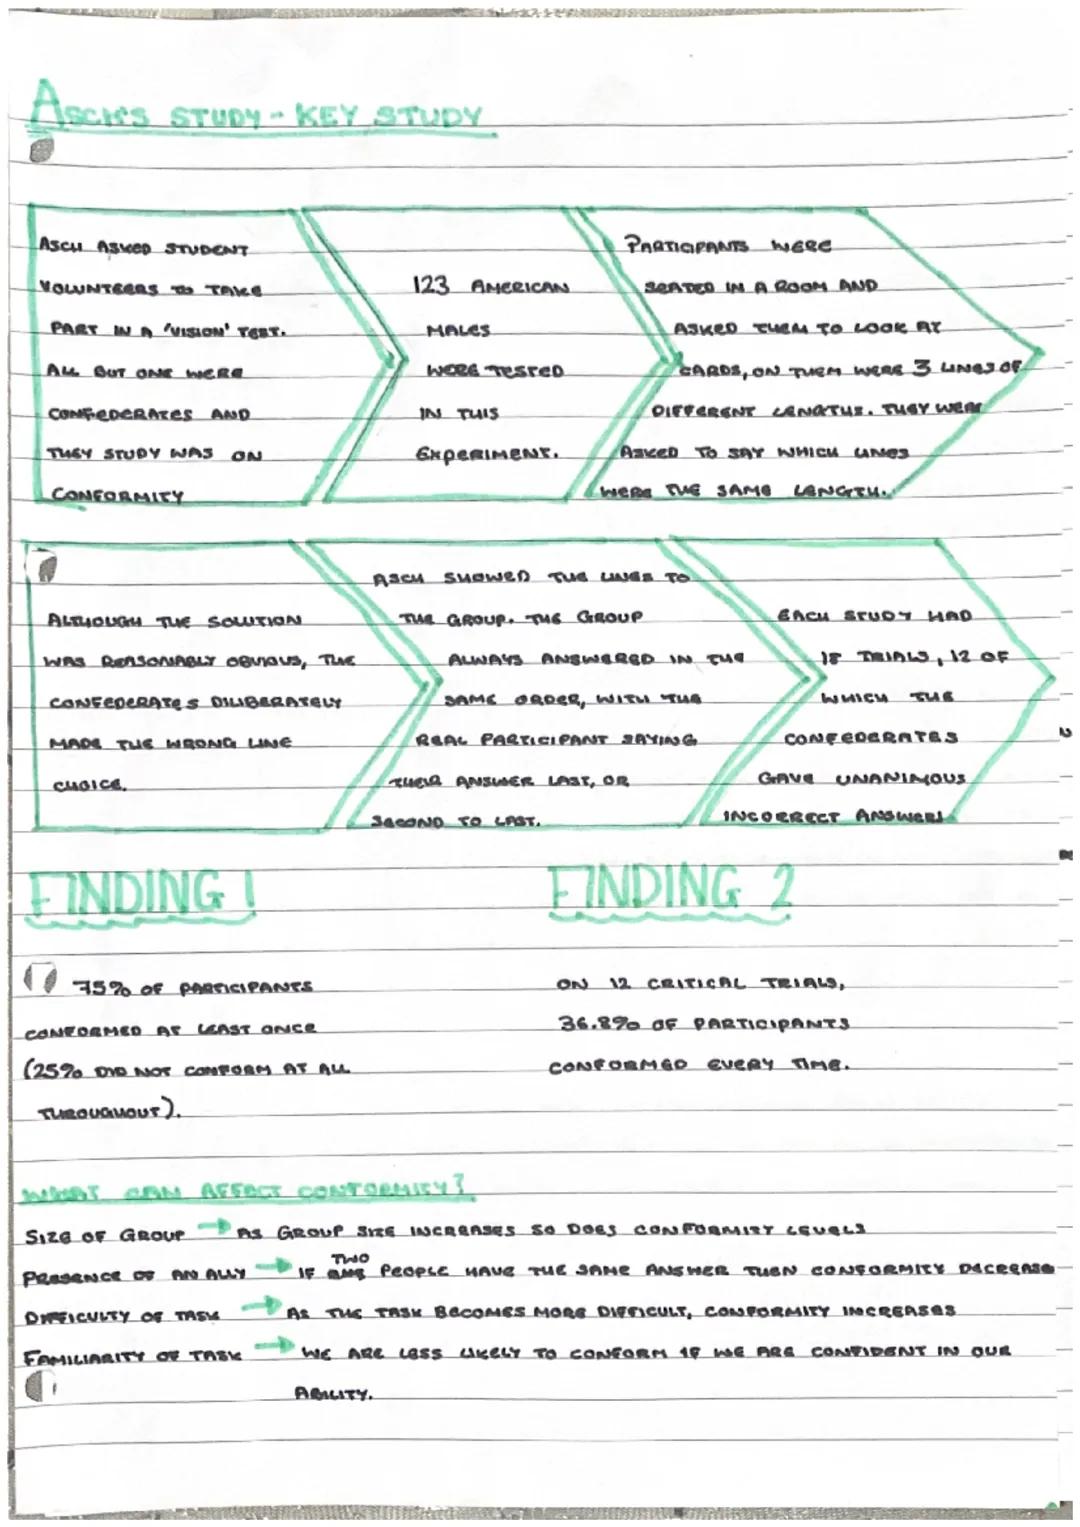 ASCH'S STUDY - KEY STUDY
ASCH ASKED STUDENT
VOLUNTEERS TO TAKE
PART IN A 'VISION' TEST.
ALL BUT ONE WERE
CONFEDERATES AND
THEY STUDY WAS ON
CONFORMITY
123 AMERICAN
MALES
WERE TESTED
IN THIS
EXPERIMENT.
PARTICIPANTS WERE
SEATED IN A ROOM AND
ASKED THEM TO LOOK AT
CARDS, ON THEM WERE 3 LINES OF
DIFFERENT LENGTHS. THEY WERE
ASKED TO SAY WHICH LINES
WERE THE SAME LENGTH.
ALTHOUGH THE SOLUTION
WAS REASONABLY OBVIOUS, THE
CONFEDERATES DILIBERATELY
MADE THE WRONG LINE
CHOICE.
ASCH SHOWED THE LINES TO
THE GROUP. THE GROUP
ALWAYS ANSWERED IN THE
SAME ORDER, WITH THE
REAL PARTICIPANT SAYING
THEIR ANSWER LAST, OR
SECOND TO LAST.
EACH STUDY HAD
18 TRIALS, 12 OF
WHICH THE
CONFEDERATES
GAVE UNANIMOUS
INCORRECT ANSWERS
FINDING 1
75% OF PARTICIPANTS
CONFORMED AT LEAST ONCE
(25% DID NOT CONFORM AT ALL
THROUGHOUT).
FINDING 2
ON 12 CRITICAL TRIALS,
36.8% OF PARTICIPANTS
CONFORMED EVERY TIME.
WHAT CAN AFFECT CONFORMITY?
SIZE OF GROUP → AS GROUP SIZE INCREASES SO DOES CONFORMITY LEVELS
PRESENCE OF AN ALLY → IF TWO PEOPLE HAVE THE SAME ANSWER THEN CONFORMITY DECREASE
DIFFICULTY OF TASK → AS THE TASK BECOMES MORE DIFFICULT, CONFORMITY INCREASES
FAMILIARITY OF TASK → WE ARE LESS LIKELY TO CONFORM IF WE ARE CONFIDENT IN OUR
ABILITY.